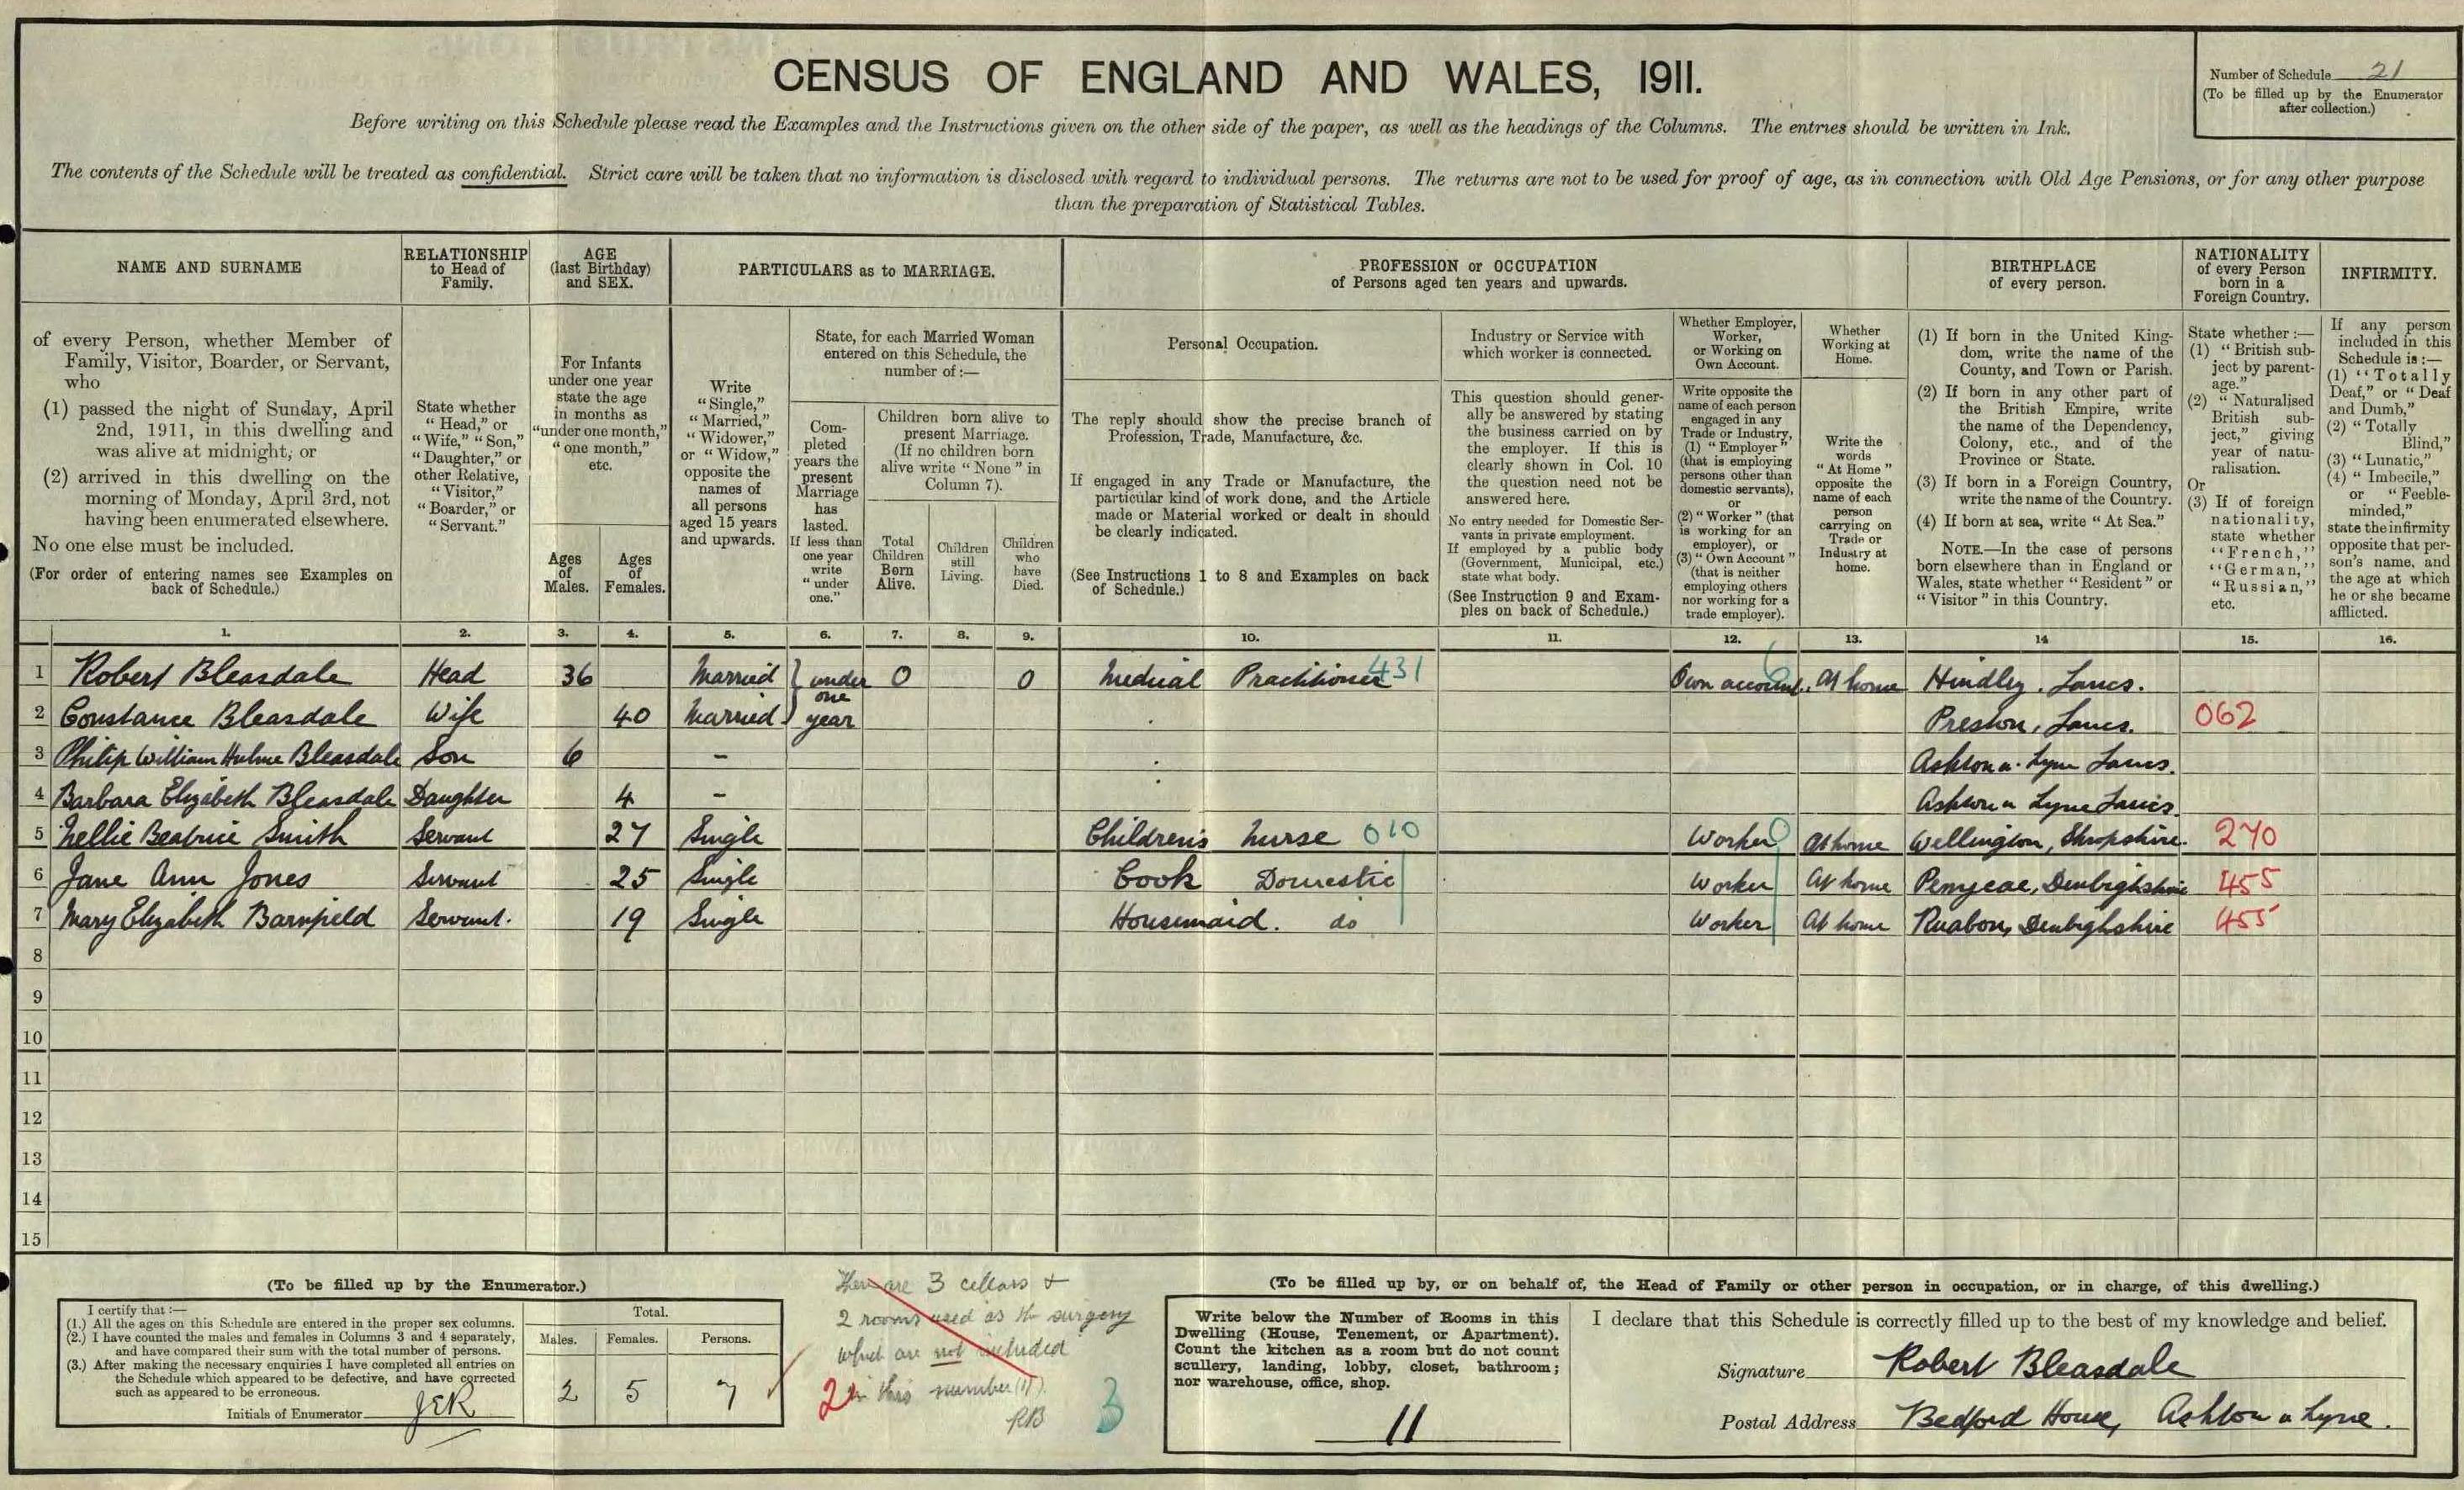 CENSUS OF ENGLAND AND WALES, 1911.
Number of Schedule 21
(To be filled up by the Enumerator
after collection.)
Before writing on this Schedule please read the Examples and the Instructions given on the other side of the paper, as well as the headings of the Columns. The entries should be written in Ink.
The contents of the Schedule will be treated as confidential. Strict care will be taken that no information is disclosed with regard to individual persons. The returns are not to be used for proof of age, as in connection with Old Age Pensions, or for any other purpose
than the preparation of Statistical Tables.
NAME AND SURNAME
of every Person, whether Member of
Family, Visitor, Boarder, or Servant,
who
(1) passed the night of Sunday, April
2nd, 1911, in this dwelling and
was alive at midnight, or
(2) arrived in this dwelling on the
morning of Monday, April 3rd, not
having been enumerated elsewhere.
No one else must be included.
(For order of entering names see Examples on
back of Schedule.)
RELATIONSHIP
to Head of
Family.
State whether
"Head," or
"Wife," "Son,"
"Daughter," or
other Relative,
"Visitor,"
"Boarder," or
"Servant."
AGE
(last Birthday)
and SEX.
For Infants
under one year
state the age
in months as
"under one month,"
"one month,"
etc.
Ages
of
Males.
Ages
of
Females.
PARTICULARS as to MARRIAGE.
Write
"Single,"
"Married,"
"Widower,"
or "Widow,"
opposite the
names of
all persons
aged 15 years
and upwards.
State, for each Married Woman
entered on this Schedule, the
number of :—
Com-
pleted
years the
present
Marriage
has
lasted.
If less than
one year
write
"under
one."
Children born alive to
present Marriage.
(If no children born
alive write "None" in
Column 7).
Total
Children
Born
Alive.
Children
still
Living.
Children
who
have
Died.
PROFESSION or OCCUPATION
of Persons aged ten years and upwards.
Personal Occupation.
The reply should show the precise branch of
Profession, Trade, Manufacture, &c.
If engaged in any Trade or Manufacture, the
particular kind of work done, and the Article
made or Material worked or dealt in should
be clearly indicated.
(See Instructions 1 to 8 and Examples on back
of Schedule.)
Industry or Service with
which worker is connected.
This question should gener-
ally be answered by stating
the business carried on by
the employer. If this is
clearly shown in Col. 10
the question need not be
answered here.
No entry needed for Domestic Ser-
vants in private employment.
If employed by a public body
(Government, Municipal, etc.)
state what body.
(See Instruction 9 and Exam-
ples on back of Schedule.)
Whether Employer,
Worker,
or Working on
Own Account.
Write opposite the
name of each person
engaged in any
Trade or Industry,
(1) "Employer"
(that is employing
persons other than
domestic servants),
or
(2) "Worker" (that
is working for an
employer), or
(3) "Own Account"
(that is neither
employing others
nor working for a
trade employer).
Whether
Working at
Home.
Write the
words
"At Home"
opposite the
name of each
person
carrying on
Trade or
Industry at
home.
BIRTHPLACE
of every person.
(1) If born in the United King-
dom, write the name of the
County, and Town or Parish.
(2) If born in any other part of
the British Empire, write
the name of the Dependency,
Colony, etc., and of the
Province or State.
(3) If born in a Foreign Country,
write the name of the Country.
(4) If born at sea, write "At Sea."
NOTE.—In the case of persons
born elsewhere than in England or
Wales, state whether "Resident" or
"Visitor" in this Country.
NATIONALITY
of every Person
born in a
Foreign Country.
State whether :—
(1) "British sub-
ject by parent-
age."
(2) "Naturalised
British sub-
ject," giving
year of natu-
ralisation.
Or
(3) If of foreign
nationality,
state whether
"French,"
"German,"
"Russian,"
etc.
INFIRMITY.
If any person
included in this
Schedule is :—
(1) "Totally
Deaf," or "Deaf
and Dumb,"
(2) "Totally
Blind,"
(3) "Lunatic,"
(4) "Imbecile,"
or "Feeble-
minded,"
state the infirmity
opposite that per-
son's name, and
the age at which
he or she became
afflicted.
1. 2. 3. 4. 5. 6. 7. 8. 9. 10. 11. 12. 13. 14 15. 16.
1 Robert Bleasdale Head 36 Married under 0 0 Medical Practitioner 431 Own account. At home Hindley. Lancs.
one
2 Constance Bleasdale Wife 40 Married year Preston, Lancs. 062
3 Philip William Hulme Bleasdale Son 6 - Ashton u. Lyne Lancs.
4 Barbara Elizabeth Bleasdale Daughter 4 - Ashton u Lyne Lancs.
5 Nellie Beatrice Smith Servant 27 Single Children's Nurse 010 Worker 0 At home Wellington, Shropshire. 270
6 Jane Ann Jones Servant 25 Single Cook Domestic Worker At home Penycae, Denbighshire 455
7 Mary Elizabeth Barnfield Servant. 19 Single Housemaid. do Worker At home Ruabon, Denbighshire 455
8
9
10
11
12
13
14
15
(To be filled up by the Enumerator.)
I certify that :—
(1.) All the ages on this Schedule are entered in the proper sex columns.
(2.) I have counted the males and females in Columns 3 and 4 separately,
and have compared their sum with the total number of persons.
(3.) After making the necessary enquiries I have completed all entries on
the Schedule which appeared to be defective, and have corrected
such as appeared to be erroneous.
Initials of Enumerator JER
Total.
Males. Females. Persons.
2 5 7
There are 3 cellars +
2 rooms used as the surgery
which are not included
in this number (11).
RB
2
3
(To be filled up by, or on behalf of, the Head of Family or other person in occupation, or in charge, of this dwelling.)
Write below the Number of Rooms in this
Dwelling (House, Tenement, or Apartment).
Count the kitchen as a room but do not count
scullery, landing, lobby, closet, bathroom;
nor warehouse, office, shop.
11
I declare that this Schedule is correctly filled up to the best of my knowledge and belief.
Signature Robert Bleasdale
Postal Address Bedford House, Ashton u Lyne.